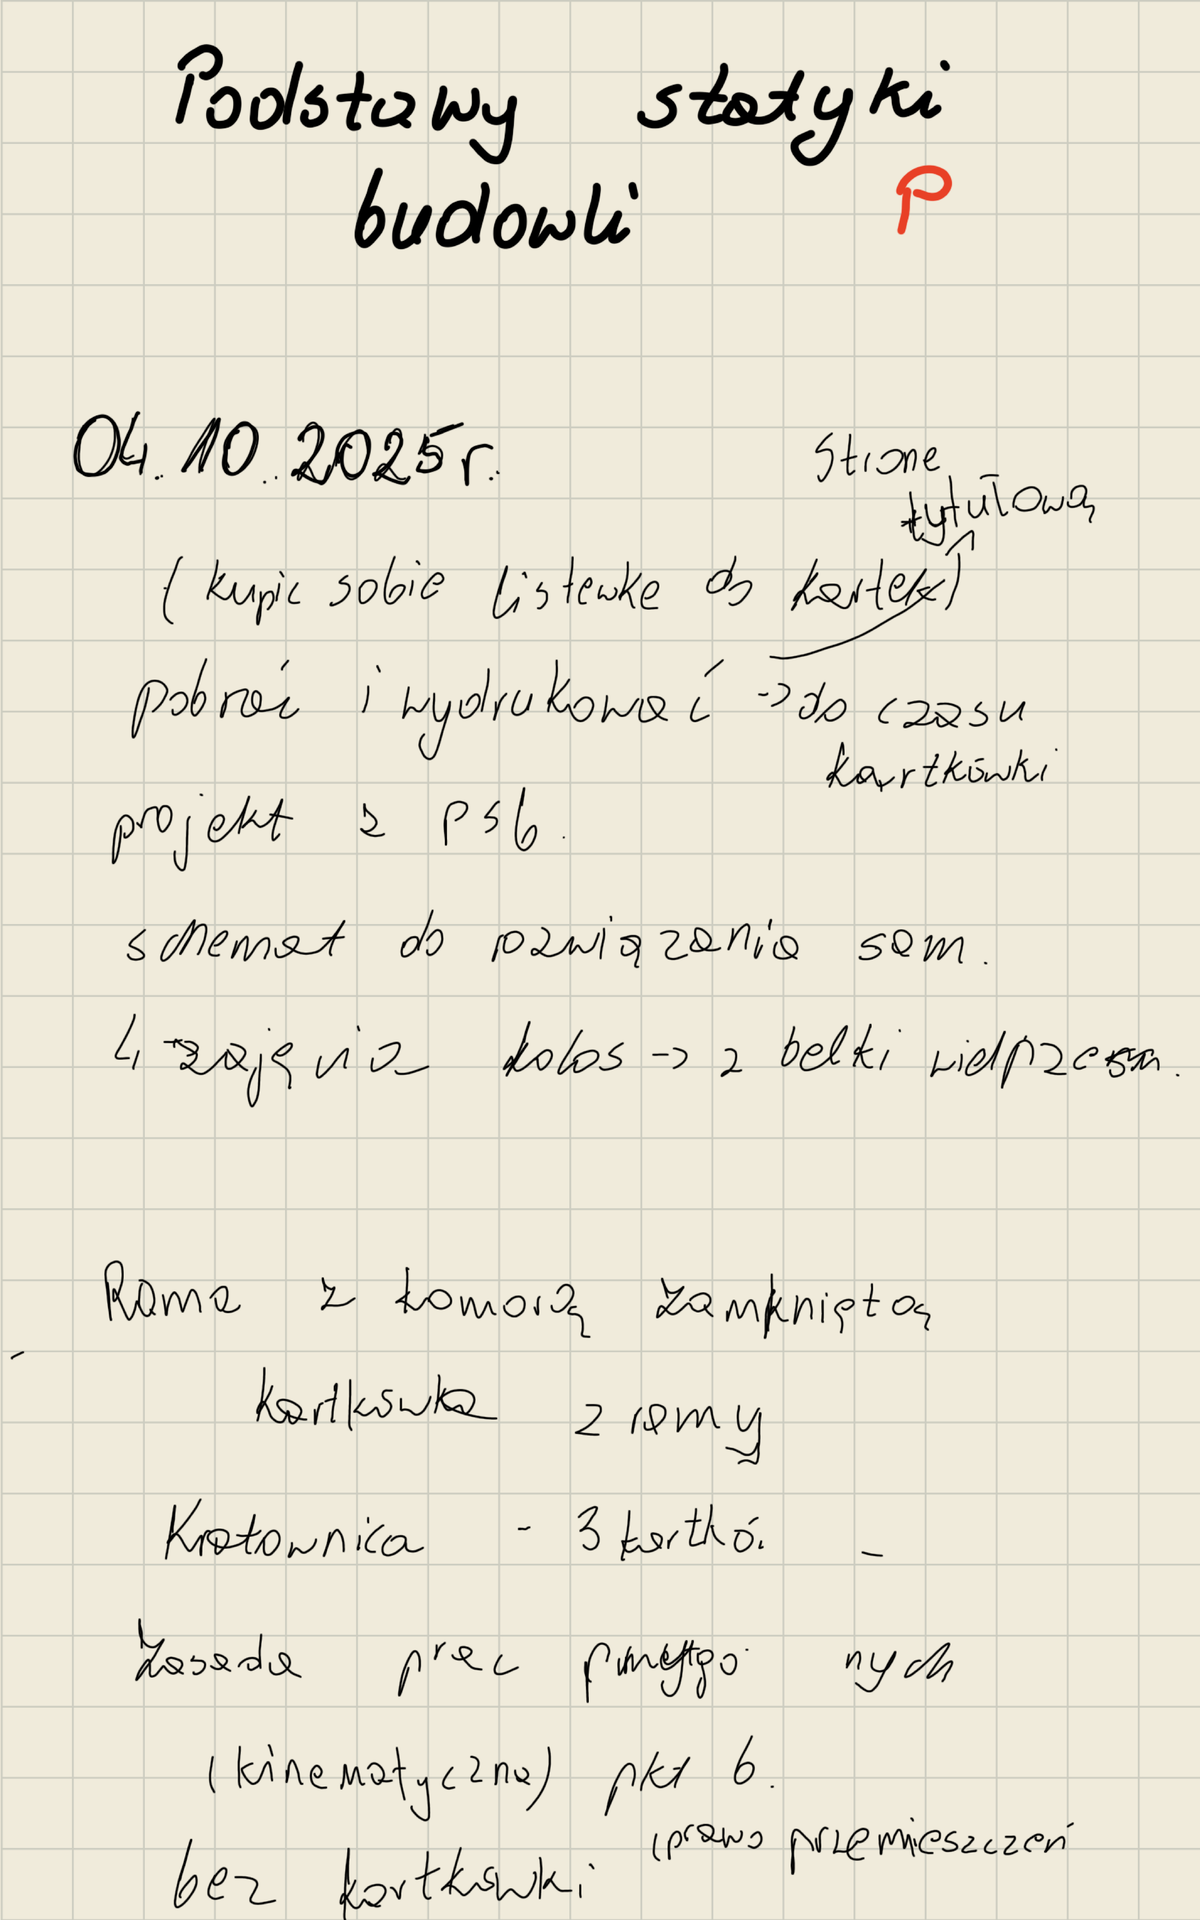 Podstawy statyki
budowli P
04.10.2025r.
Stronę
tytułową
(kupic sobie listewkę do kartek)
pobrać i wydrukować -> do czasu
kartkówki
projekt z PSb.
schemat do rozwiązania sam.
4 zajęcia kolos -> z belki
Rama z komorą zamkniętą
kartkówka z ramy
Kratownica - 3 kartkó.
Zasada prac nych
(kinematyczna) pkt 6.
(prawo przemieszczeń
bez kartkówki